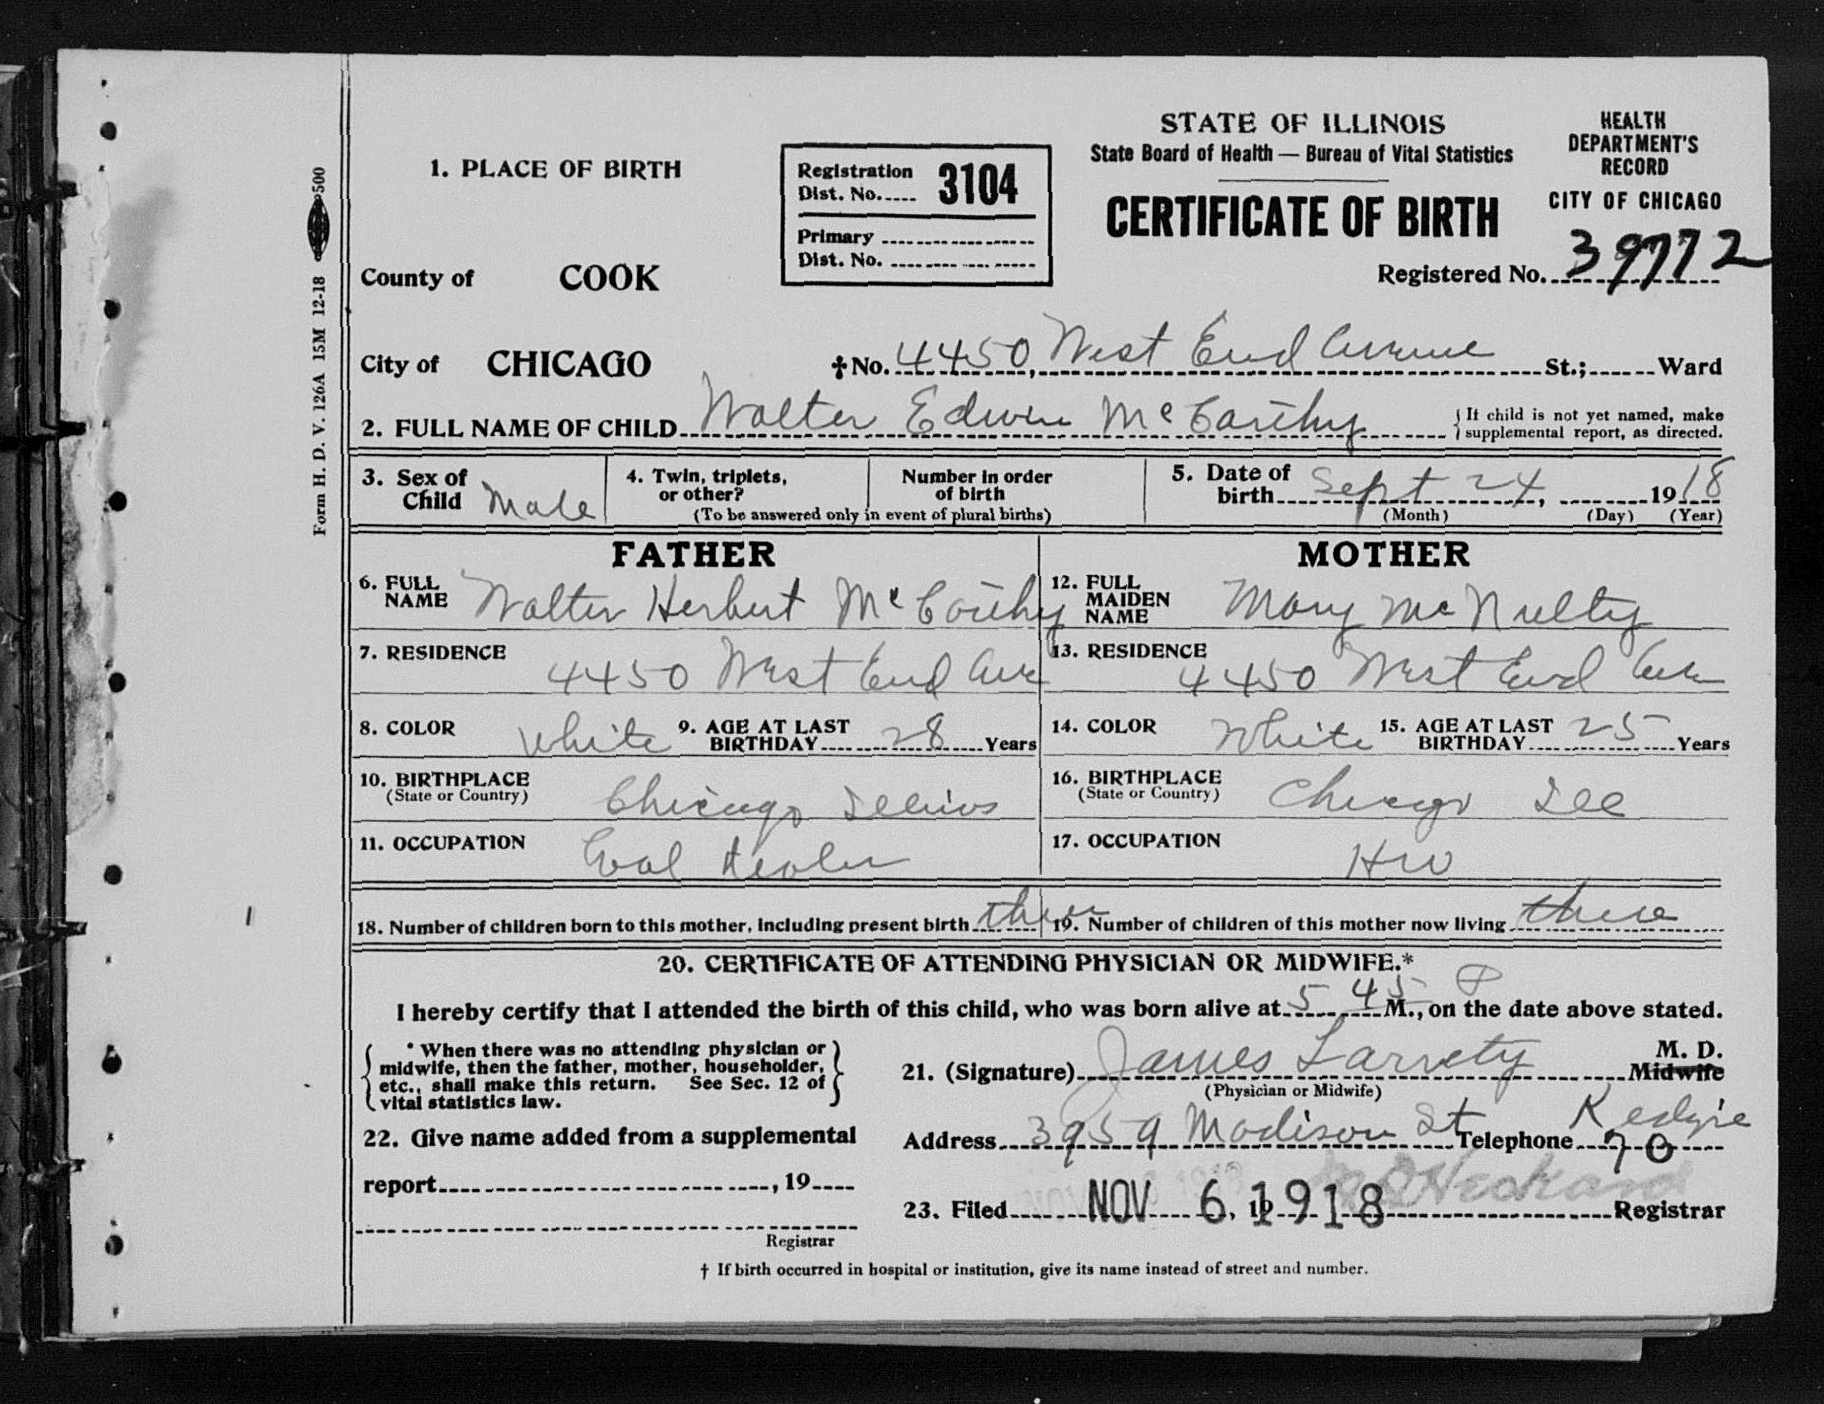 STATE OF ILLINOIS
State Board of Health — Bureau of Vital Statistics
CERTIFICATE OF BIRTH
HEALTH
DEPARTMENT'S
RECORD
CITY OF CHICAGO
Registered No. 39772
1. PLACE OF BIRTH
Registration
Dist. No. 3104
Primary
Dist. No.
County of COOK
City of CHICAGO †No. 4450, West End Avenue St.; Ward
2. FULL NAME OF CHILD Walter Edwin McCarthy { If child is not yet named, make
supplemental report, as directed.
3. Sex of
Child Male
4. Twin, triplets,
or other?
Number in order
of birth
(To be answered only in event of plural births)
5. Date of
birth Sept 24, 1918
(Month) (Day) (Year)
FATHER
6. FULL
NAME Walter Herbert McCarthy
7. RESIDENCE 4450 West End Ave
8. COLOR White 9. AGE AT LAST
BIRTHDAY 28 Years
10. BIRTHPLACE
(State or Country) Chicago Illinois
11. OCCUPATION Coal dealer
MOTHER
12. FULL
MAIDEN
NAME Mary McNulty
13. RESIDENCE 4450 West End Ave
14. COLOR White 15. AGE AT LAST
BIRTHDAY 25 Years
16. BIRTHPLACE
(State or Country) Chicago Ill
17. OCCUPATION HW
18. Number of children born to this mother, including present birth three 19. Number of children of this mother now living three
20. CERTIFICATE OF ATTENDING PHYSICIAN OR MIDWIFE.*
I hereby certify that I attended the birth of this child, who was born alive at 5 45 P M., on the date above stated.
{ * When there was no attending physician or
midwife, then the father, mother, householder,
etc., shall make this return. See Sec. 12 of
vital statistics law. }
21. (Signature) James Larrety M. D.
Midwife
(Physician or Midwife)
22. Give name added from a supplemental
report , 19
Registrar
Address 3959 Madison St Telephone Kedzie
70
23. Filed NOV 6, 19 1918 Registrar
† If birth occurred in hospital or institution, give its name instead of street and number.
Form H. D. V. 126A 15M 12-18 500